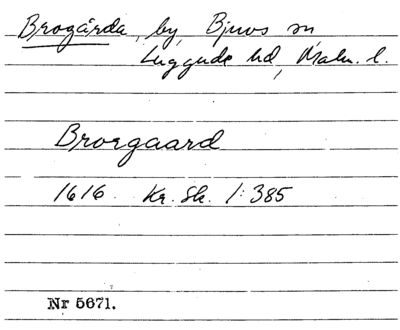 Brogårda, by, Bjuvs sn,
Luggude hd, Malm. l.
Brorgaard
1616. Kr. Sk. 1:385
Nr 5671.